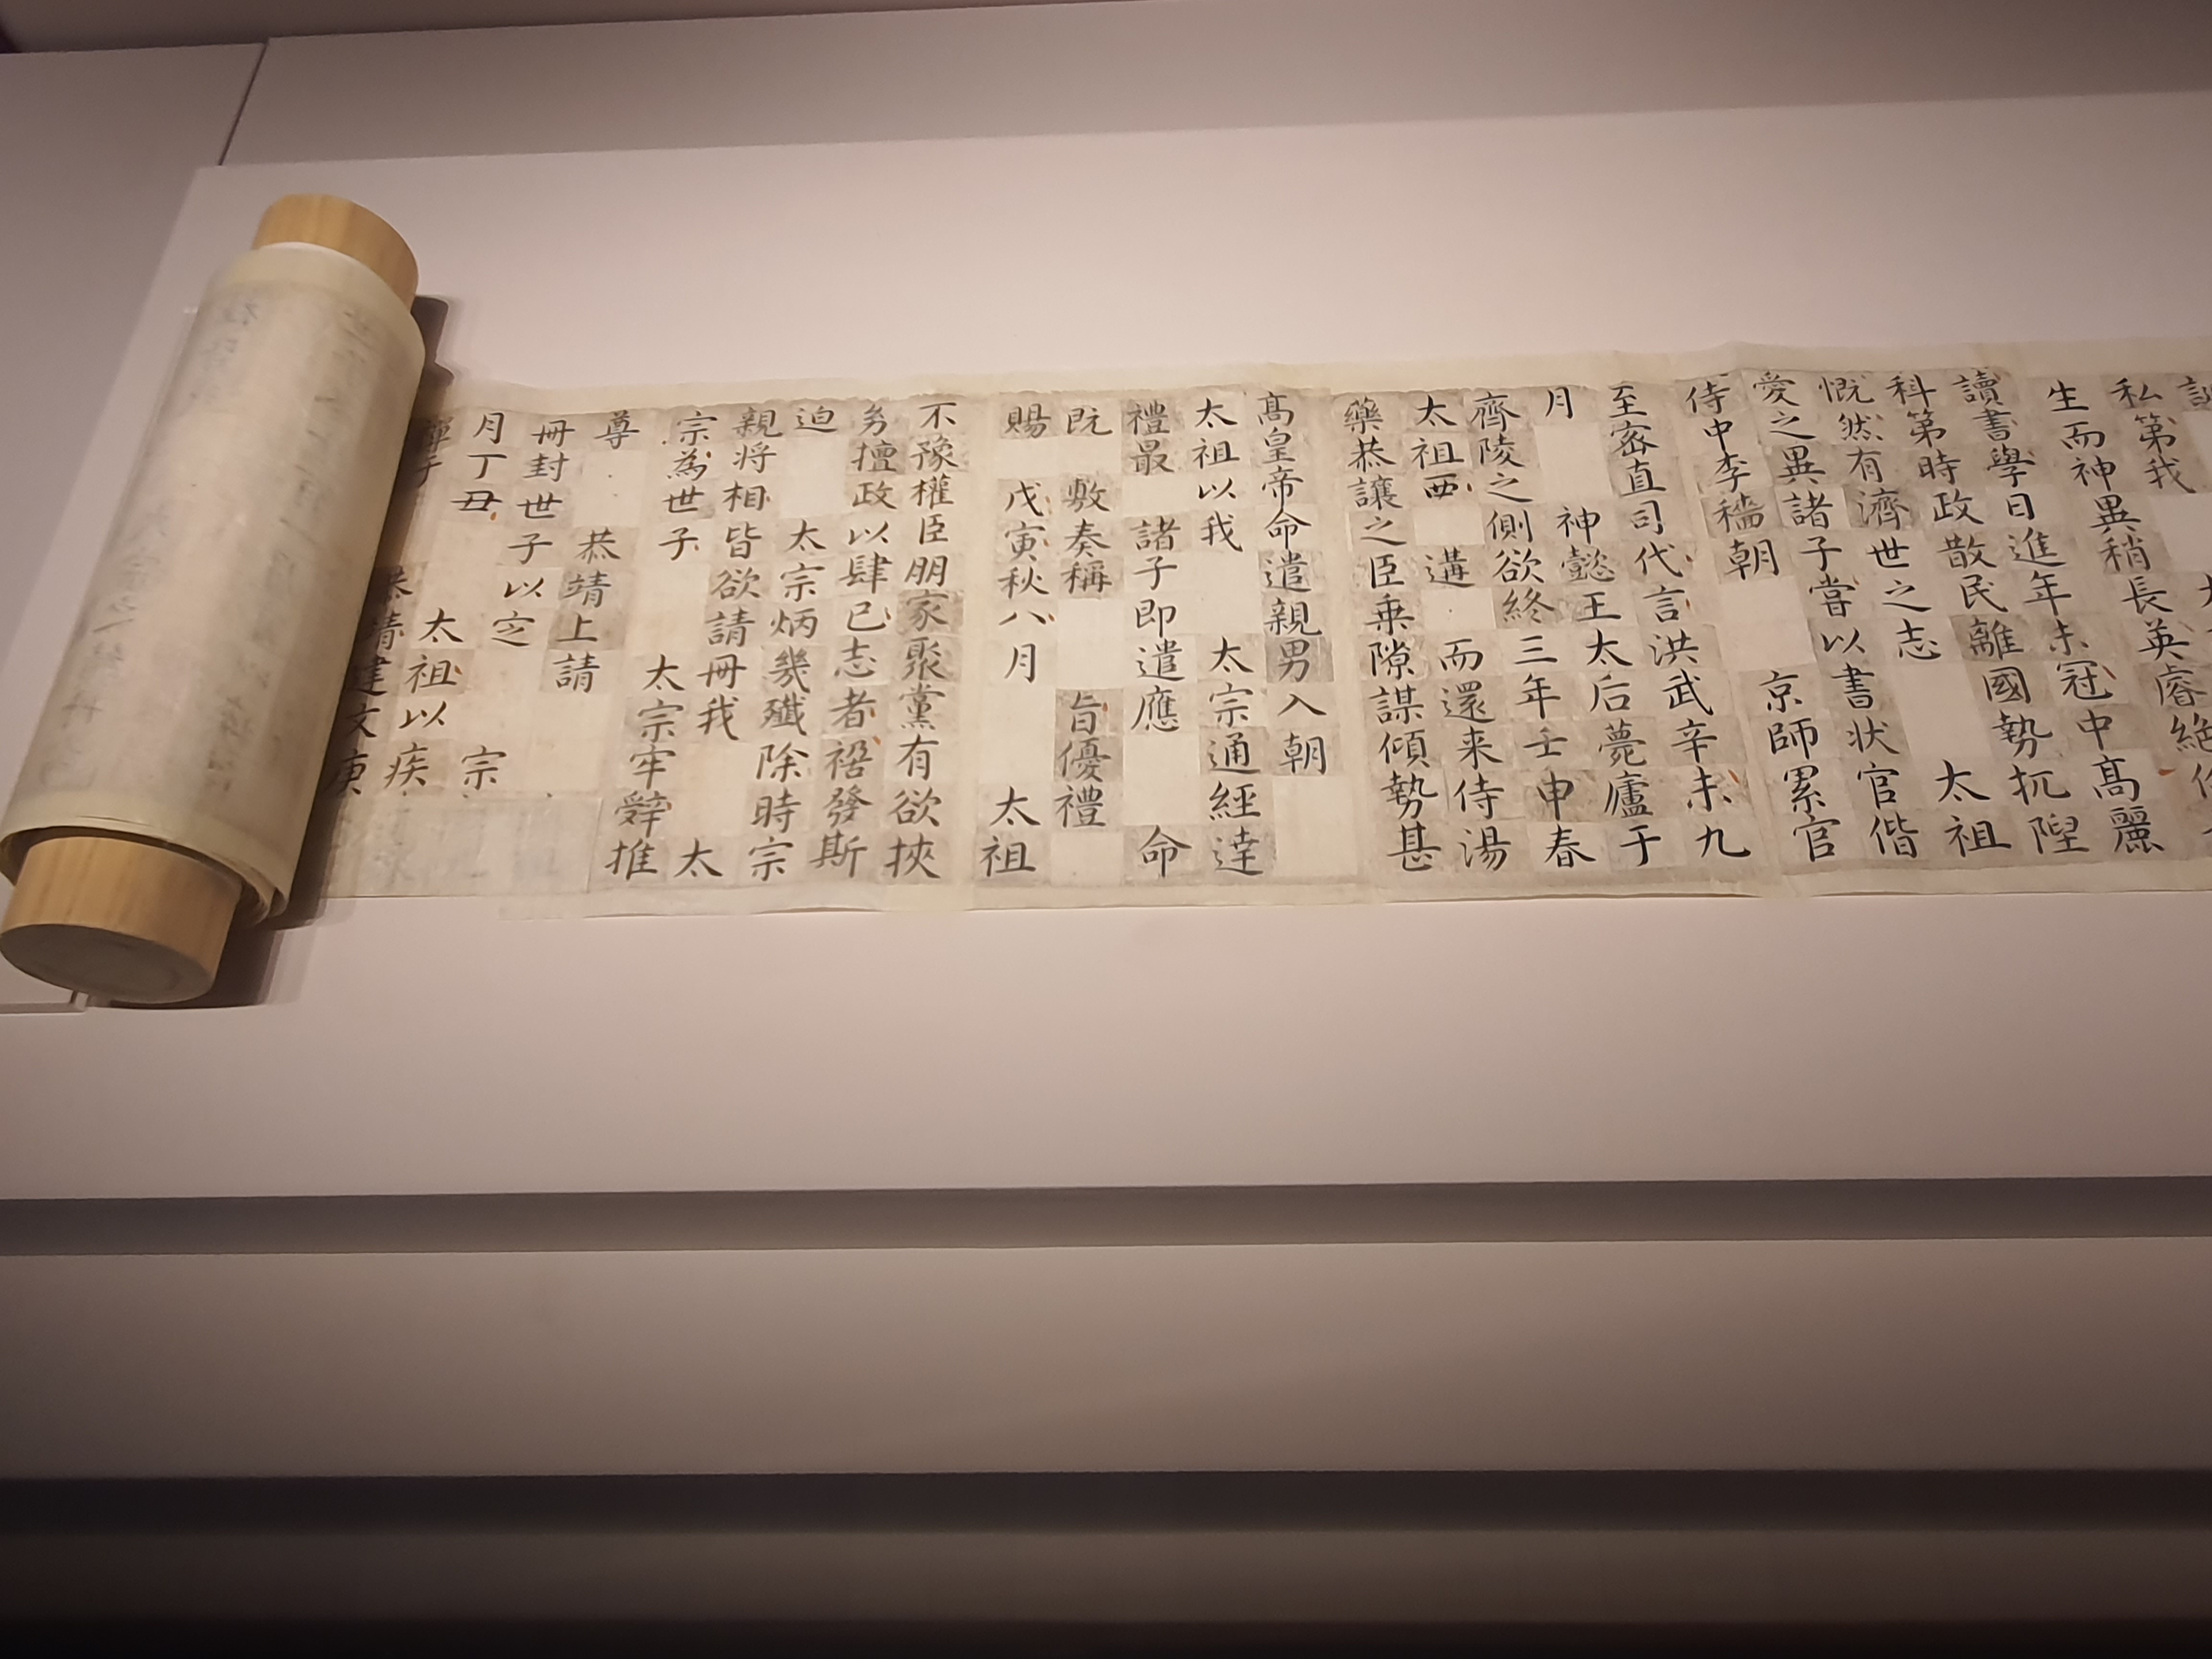 私第我
生而神異稍長英睿絶
讀書學日進年未冠中高麗
科第時政散民離國勢扤隉
慨然有濟世之志 太祖
愛之異諸子嘗以書狀官偕
侍中李穡朝 京師累官
至密直司代言洪武辛未九
月 神懿王太后薨廬于
齊陵之側欲終三年壬申春
太祖西 遘 而還来侍湯
藥恭讓之臣乗隙謀傾勢甚
高皇帝命遣親男入朝
太祖以我 太宗通經達
禮最 諸子即遣應 命
既 敷奏稱 旨優禮
賜 戊寅秋八月 太祖
不豫權臣朋家聚黨有欲挾
㓜擅政以肆己志者禍發斯
迫 太宗炳幾殲除時宗
親将相皆欲請冊我 太
宗為世子 太宗牢辤推
尊 恭靖上請
冊封世子以定 宗
月丁丑 太祖以疾